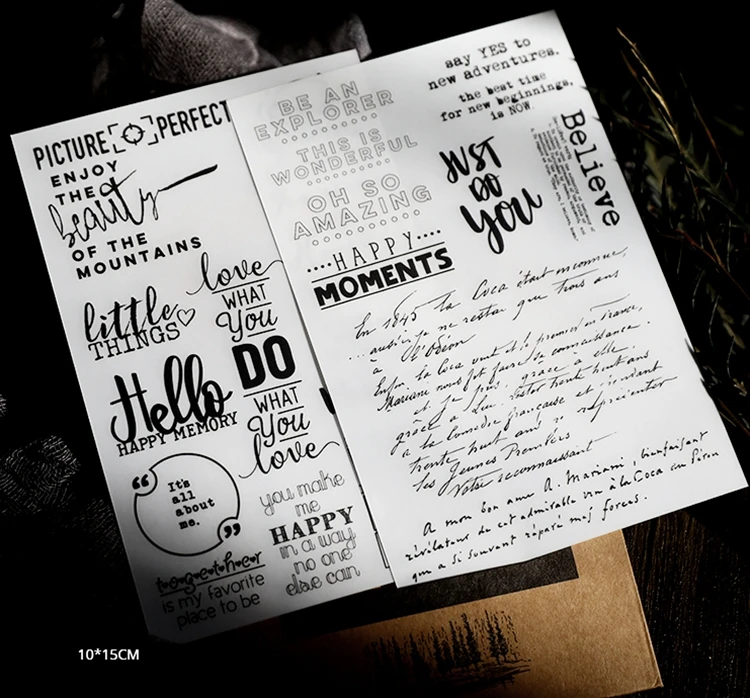 PICTURE PERFECT
ENJOY
THE
beauty
OF THE
MOUNTAINS
little
THINGS
love
WHAT
You
DO
WHAT
You
love
Hello
HAPPY MEMORY
“
It's
all
about
me.
”
together
is my favorite
place to be
you make
me
HAPPY
in a way
no one
else can
BE AN
EXPLORER
THIS IS
WONDERFUL
OH SO
AMAZING
....HAPPY....
MOMENTS
say YES to
new adventures.
the best time
for new beginnings
is NOW.
JUST
DO
You
Believe
En 1845 la Coca était inconnue,
ne restai que trois ans
à l'Odéon
Enfin, la Coca vint et le premier en France,
Mariani nous fit faire sa connaissance.
et je pus, grâce à elle,
grâce à lui, rester trente huit ans
à la Comédie française et pendant
trente huit ans y représenter
les Jeunes Premiers
Votre reconnaissant
A mon bon ami A. Mariani, bienfaisant
révélateur de cet admirable vin à la Coca du Pérou
qui a si souvent réparé mes forces.
10*15CM